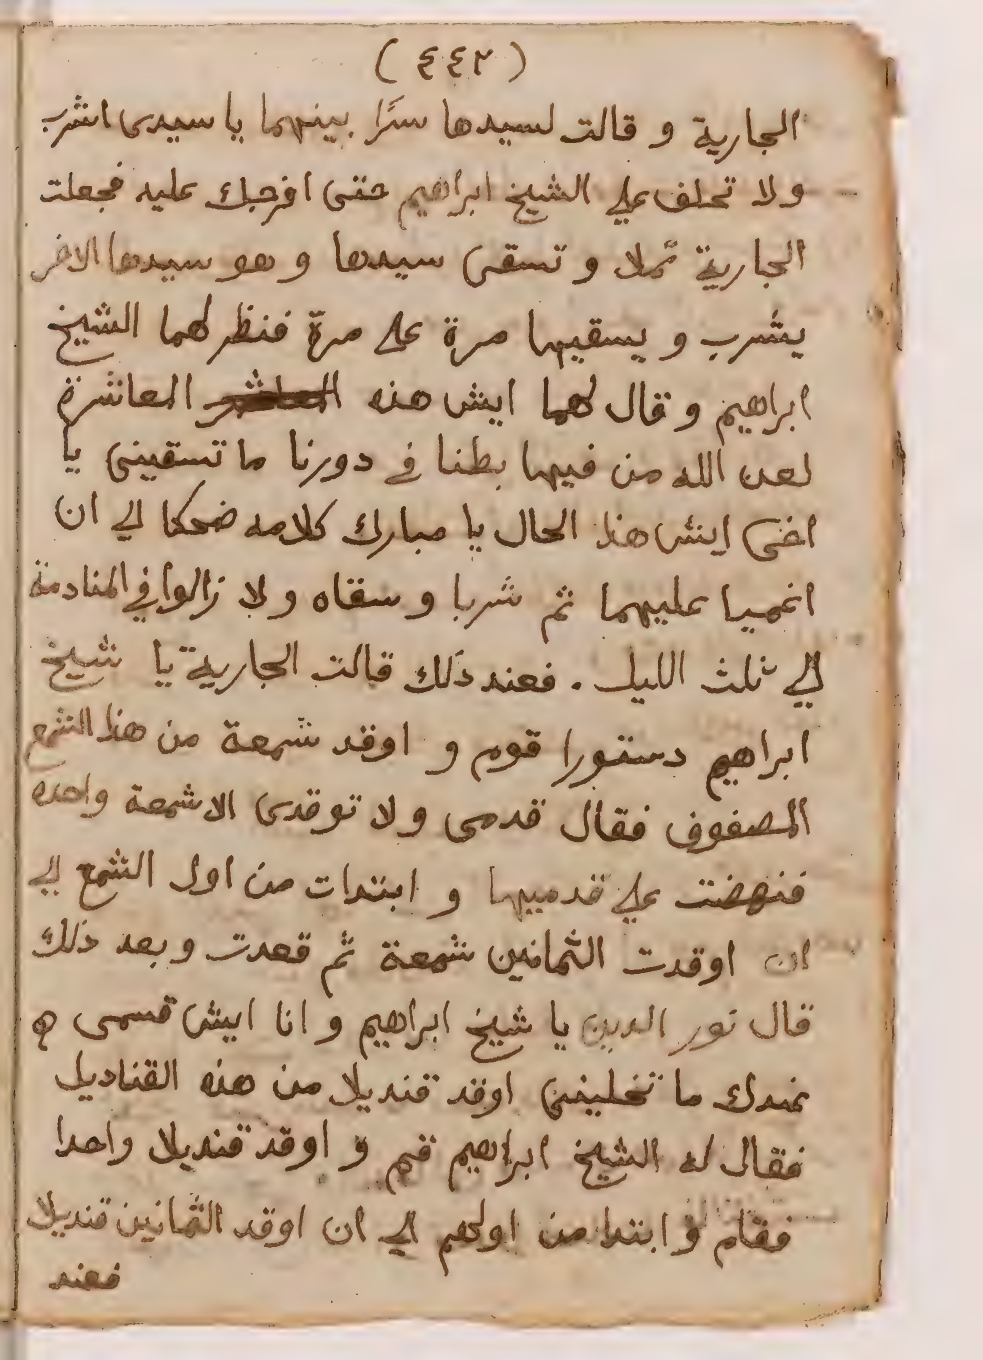 ( ٤٤٢ )
الجارية و قالت لسيدها سرًا بينهما يا سيدى اشرب
ولا تحلف علي الشيخ ابراهيم حتى افرجك عليه فجعلت
الجارية تملا و تسقى سيدها و هو سيدها الاخر
يشرب و يسقيها مرة على مرة فنظرهما الشيخ
ابراهيم و قال لهما ايش هذه المعاشرة
لعن الله من فيها بطنا في دورنا ما تسقينى يا
اخى ايش هذا الحال يا مبارك كلامه ضحكا الي ان
اغميا عليهما ثم شربا و سقاه ولا زالوا في المنادمة
الي ثلث الليل . فعند ذلك قالت الجارية يا شيخ
ابراهيم دستورا قوم و اوقد شمعة من هذا الشمع
المصفوف فقال قدمى ولا توقدى الا شمعة واحده
فنهضت علي قدمييها و ابتدات من اول الشمع الي
ان اوقدت الثمانين شمعة ثم قعدت و بعد ذلك
قال نور الدين يا شيخ ابراهيم و انا ايش قسمى
عندك ما تخلينى اوقد قنديلا من هذه القناديل
فقال له الشيخ ابراهيم قم و اوقد قنديلا واحدا
فقام و ابتدا من اولهم الي ان اوقد الثمانين قنديلا
فعند